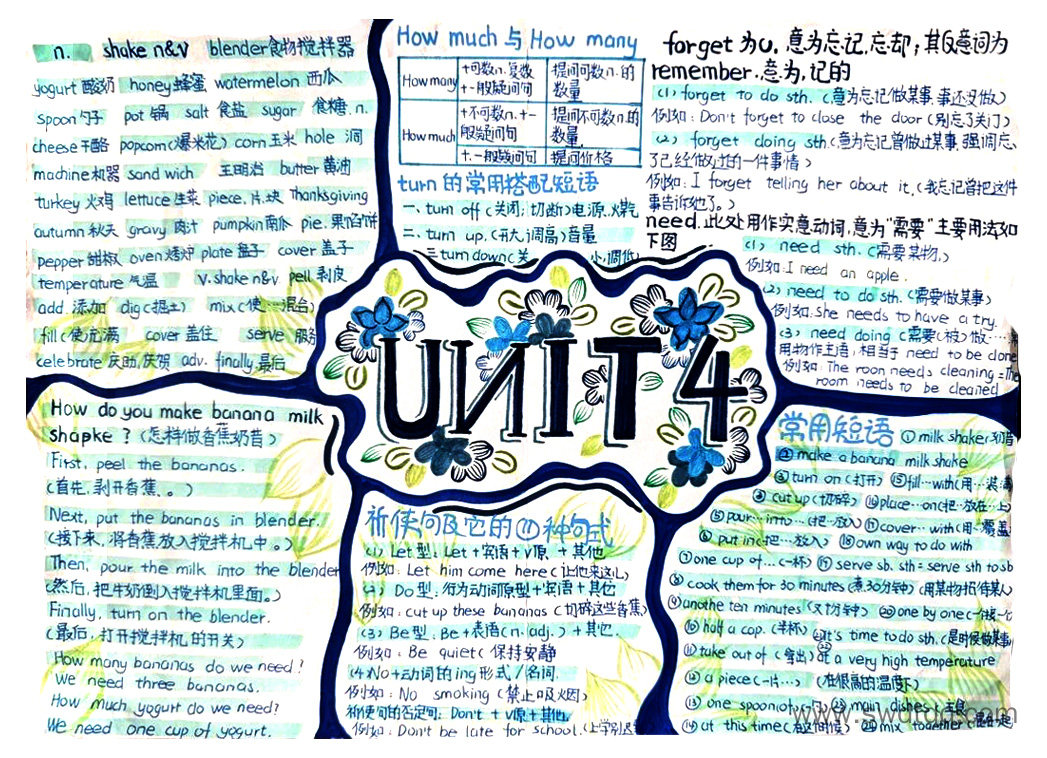 n. shake n&v blender食物搅拌器
yogurt 酸奶 honey蜂蜜 watermelon 西瓜
spoon勺子 pot 锅 salt 食盐 sugar 食糖. n.
cheese干酪 popcorn(爆米花) corn玉米 hole 洞
machine机器 sand wich 三明治 butter 黄油
turkey 火鸡 lettuce生菜 piece.片.块 Thanksgiving
autumn秋天 gravy 肉汁 pumpkin南瓜 pie. 果馅饼
pepper 甜椒 oven烤炉 plate 盘子 cover 盖子
temperature 气温 v.shake n&v pell 剥皮
add.添加 dig(掘土) mix(使…混合)
fill(使)充满 cover 盖住 serve 服务
celebrate 庆助,庆贺 adv. finally.最后
How much 与 How many
How many +可数n.复数 +一般疑问句 提问可数n.的数量
How much +不可数n.+一般疑问句 提问不可数n.的数量
+.一般疑问句 提问价格
turn 的常用搭配短语
一、turn off (关闭; 切断)电源.煤气
二、turn up. (开大,调高)音量
三turn down(关 小,调低)
forget 为v. 意为忘记.忘却; 其反意词为
remember.意为.记的
(1) forget to do sth. (意为忘记做某事.事还没做)
例如: Don't forget to close the door (别忘了关门)
(2) forget doing sth.(意为忘记曾做过某事.强调忘
了已经做过的一件事情)
例如: I forget telling her about it.(我忘记曾把这件
事告诉她了。)
need.此处用作实意动词,意为"需要"主要用法如
下图
(1) need sth. (需要某物.)
例如:I need an apple.
(2) need to do sth. (需要做某事)
例如.She needs to have a try.
(3) need doing (需要(被)做…
用物作主语,相当于 need to be done
例如: The roon needs cleaning = The
room needs to be cleaned
UNIT 4
How do you make banana milk
shapke ? (怎样做香蕉奶昔)
First, peel the bananas.
(首先,剥开香蕉.。)
Next, put the bananas in blender.
(接下来,将香蕉放入搅拌机中。)
Then, pour the milk into the blender
(然后,把牛奶倒入搅拌机里面。)
Finally, turn on the blender.
(最后,打开搅拌机的开关)
How many bananas do we need?
We need three bananas.
How much yogurt do we need?
We need one cup of yogurt.
祈使句及它的(4)种句式
(1) Let型. Let +宾语+v原 + 其他
例如: Let him come here (让他来这儿)
(2) Do型.行为动词原型+宾语+其它
例如: cut up these bananas (切碎这些香蕉)
(3) Be型.Be+表语(n.adj.)+其它.
例如: Be quiet(保持安静
(4)No+动词的ing形式/名词.
例如: No smoking (禁止吸烟)
祈使句的否定句: Don't + v原+其他.
例如: Don't be late for school.(上学别迟
常用短语 ①milk shake(奶昔
②make a banana milk shake
③turn on (打开) ⑮fill…with(用…装满
cut up(切碎) ⑯place…on(把…放在…上
⑤pour…into…(把…放入 ⑰cover…with(用…覆盖
⑥put in(把…放入) ⑱own way to do with
⑦one cup of…(一杯) ⑲serve sb. sth=serve sth to sb
⑧cook them for 30 minutes (煮30分钟) (用某物招待某人)
⑨anothe ten minutes (又十分钟) ⑳one by one(一接一
⑩half a cop. (半杯) It's time to do sth.(是时候做某事
⑪take out of (拿出) at a very high temperature
⑫a piece(一片…) (在很高的温度下)
⑬one spoon of main dishes 主食
⑭at this time(在这时候) mix together(混合起